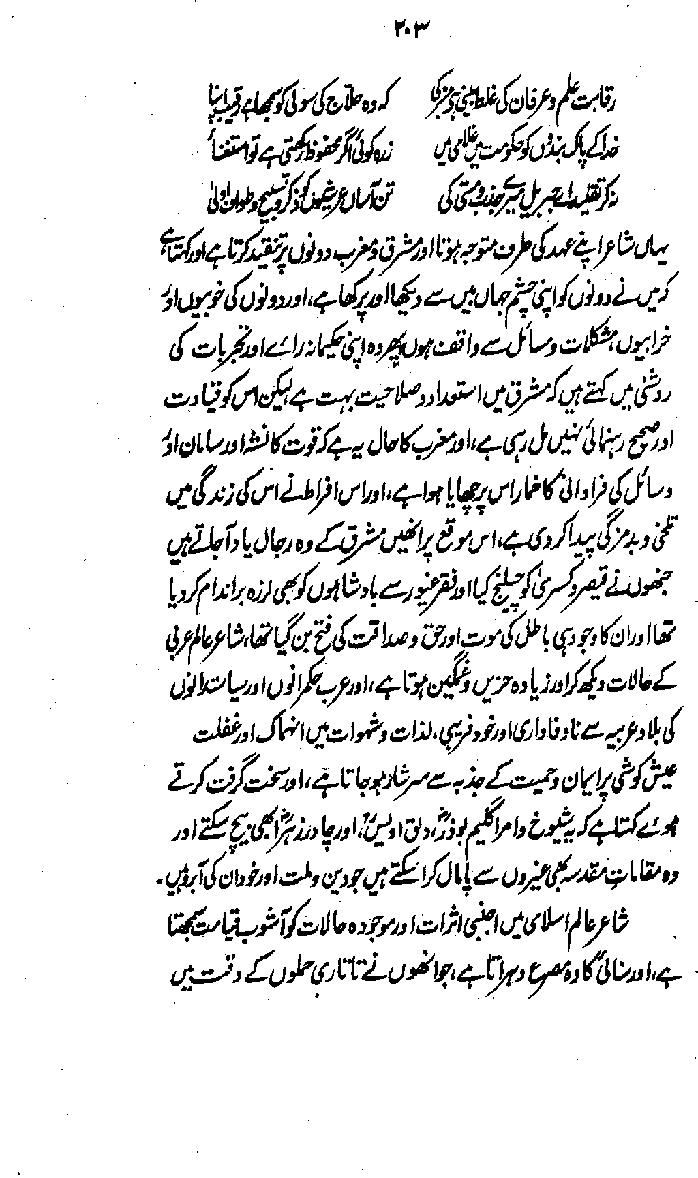 ۲۰۳
رقابت علم و عرفاں کی غلط بینی ہے منبر کی کہ وہ حلاج کی سولی کو سمجھا ہے رقیب اپنا
خدا کے پاک بندوں کو حکومت میں غلامی میں زرہ کوئی اگر محفوظ رکھتی ہے تو استغنا
نہ کر تقلید اے جبریل میرے جذب و مستی کی تن آساں عرشیوں کو ذکر و تسبیح و طواف اولیٰ
یہاں شاعر اپنے عہد کی طرف متوجہ ہوتا اور مشرق و مغرب دونوں پر تنقید کرتا ہے اور کہتا ہے
کہ میں نے دونوں کو اپنی چشم جہاں بیں سے دیکھا اور پرکھا ہے، اور دونوں کی خوبیوں اور
خرابیوں، مشکلات و مسائل سے واقف ہوں پھر وہ اپنی حکیمانہ رائے اور تجربات کی
روشنی میں کہتے ہیں کہ مشرق میں استعداد و صلاحیت بہت ہے لیکن اس کو قیادت
اور صحیح رہنمائی نہیں مل رہی ہے، اور مغرب کا حال یہ ہے کہ قوت کا نشہ اور سامان اور
وسائل کی فراوانی کا خمار اس پر چھایا ہوا ہے، اور اس افراط نے اس کی زندگی میں
تلخی و بدمزگی پیدا کر دی ہے، اس موقع پر انھیں مشرق کے وہ رجال یاد آجاتے ہیں
جنھوں نے قیصر و کسریٰ کو چیلنج کیا اور فقر غیور سے بادشاہوں کو بھی لرزہ براندام کر دیا
تھا اور ان کا وجود ہی باطل کی موت اور حق و صداقت کی فتح بن گیا تھا، شاعر عالم عربی
کے حالات دیکھ کر اور زیادہ حزیں و غمگین ہوتا ہے، اور عرب حکمرانوں اور سیاست دانوں
کی بلاد عربیہ سے ناوفاداری اور خود فریبی، لذات و شہوات میں انہماک اور غفلت
عیش کوشی پر ایمان و حمیت کے جذبہ سے سرشار ہو جاتا ہے، اور سخت گرفت کرتے
ہوئے کہتا ہے کہ یہ شیوخ و امرا گلیم بوذرؓ، دلق اویسؓ، اور چادر زہراؓ بھی بیچ سکتے اور
وہ مقامات مقدسہ بھی غیروں سے پامال کرا سکتے ہیں جو دین و ملت اور خود ان کی آبرو ہیں۔
شاعر عالم اسلامی میں اجنبی اثرات اور موجودہ حالات کو آشوب قیامت سمجھتا
ہے، اور سنائیؒ کا وہ مصرع دہراتا ہے، جو انھوں نے تاتاری حملوں کے وقت میں